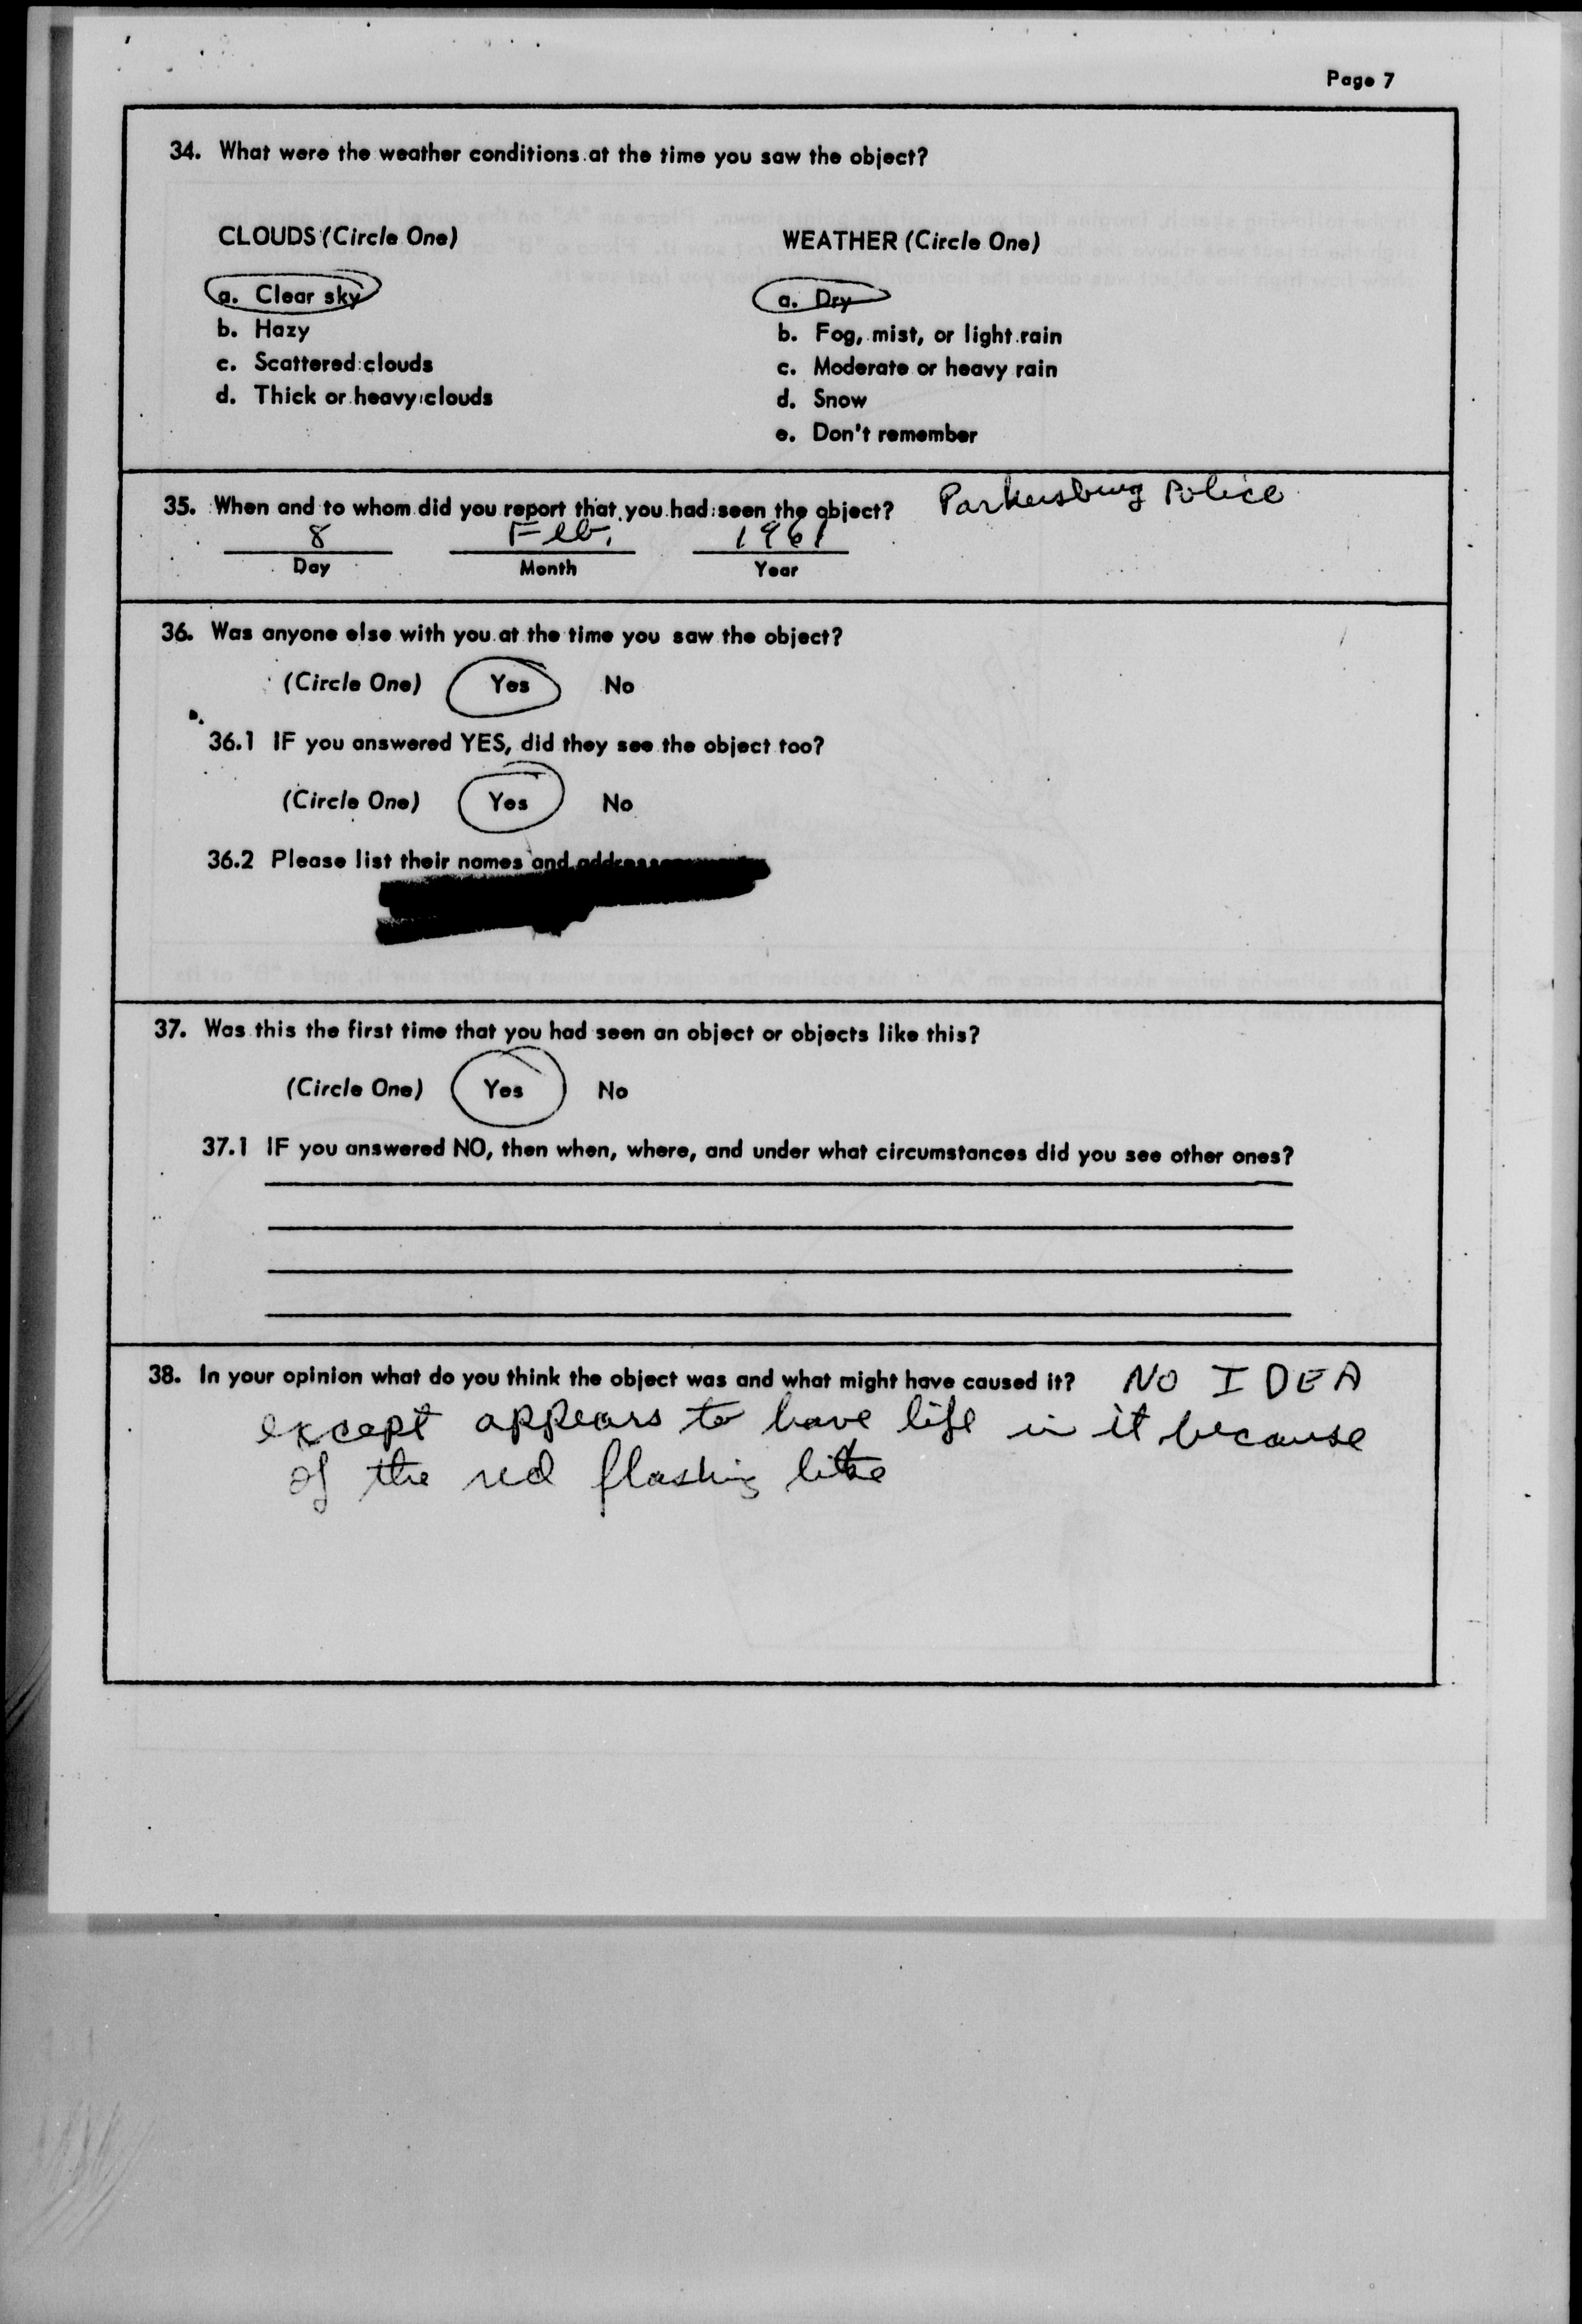 Page 7
34. What were the weather conditions at the time you saw the object?
CLOUDS (Circle One)
WEATHER (Circle One)
a. Clear sky
a. Dry
b. Hazy
b. Fog, mist, or light rain
c. Scattered clouds
c. Moderate or heavy rain
d. Thick or heavy clouds
d. Snow
e. Don't remember
35. When and to whom did you report that you had seen the object? Parkersburg Police
8 Feb. 1961
Day Month Year
36. Was anyone else with you at the time you saw the object?
(Circle One) Yes No
36.1 IF you answered YES, did they see the object too?
(Circle One) Yes No
36.2 Please list their names and
37. Was this the first time that you had seen an object or objects like this?
(Circle One) Yes No
37.1 IF you answered NO, then when, where, and under what circumstances did you see other ones?
38. In your opinion what do you think the object was and what might have caused it? NO IDEA
except appears to have life in it because
of the red flashing